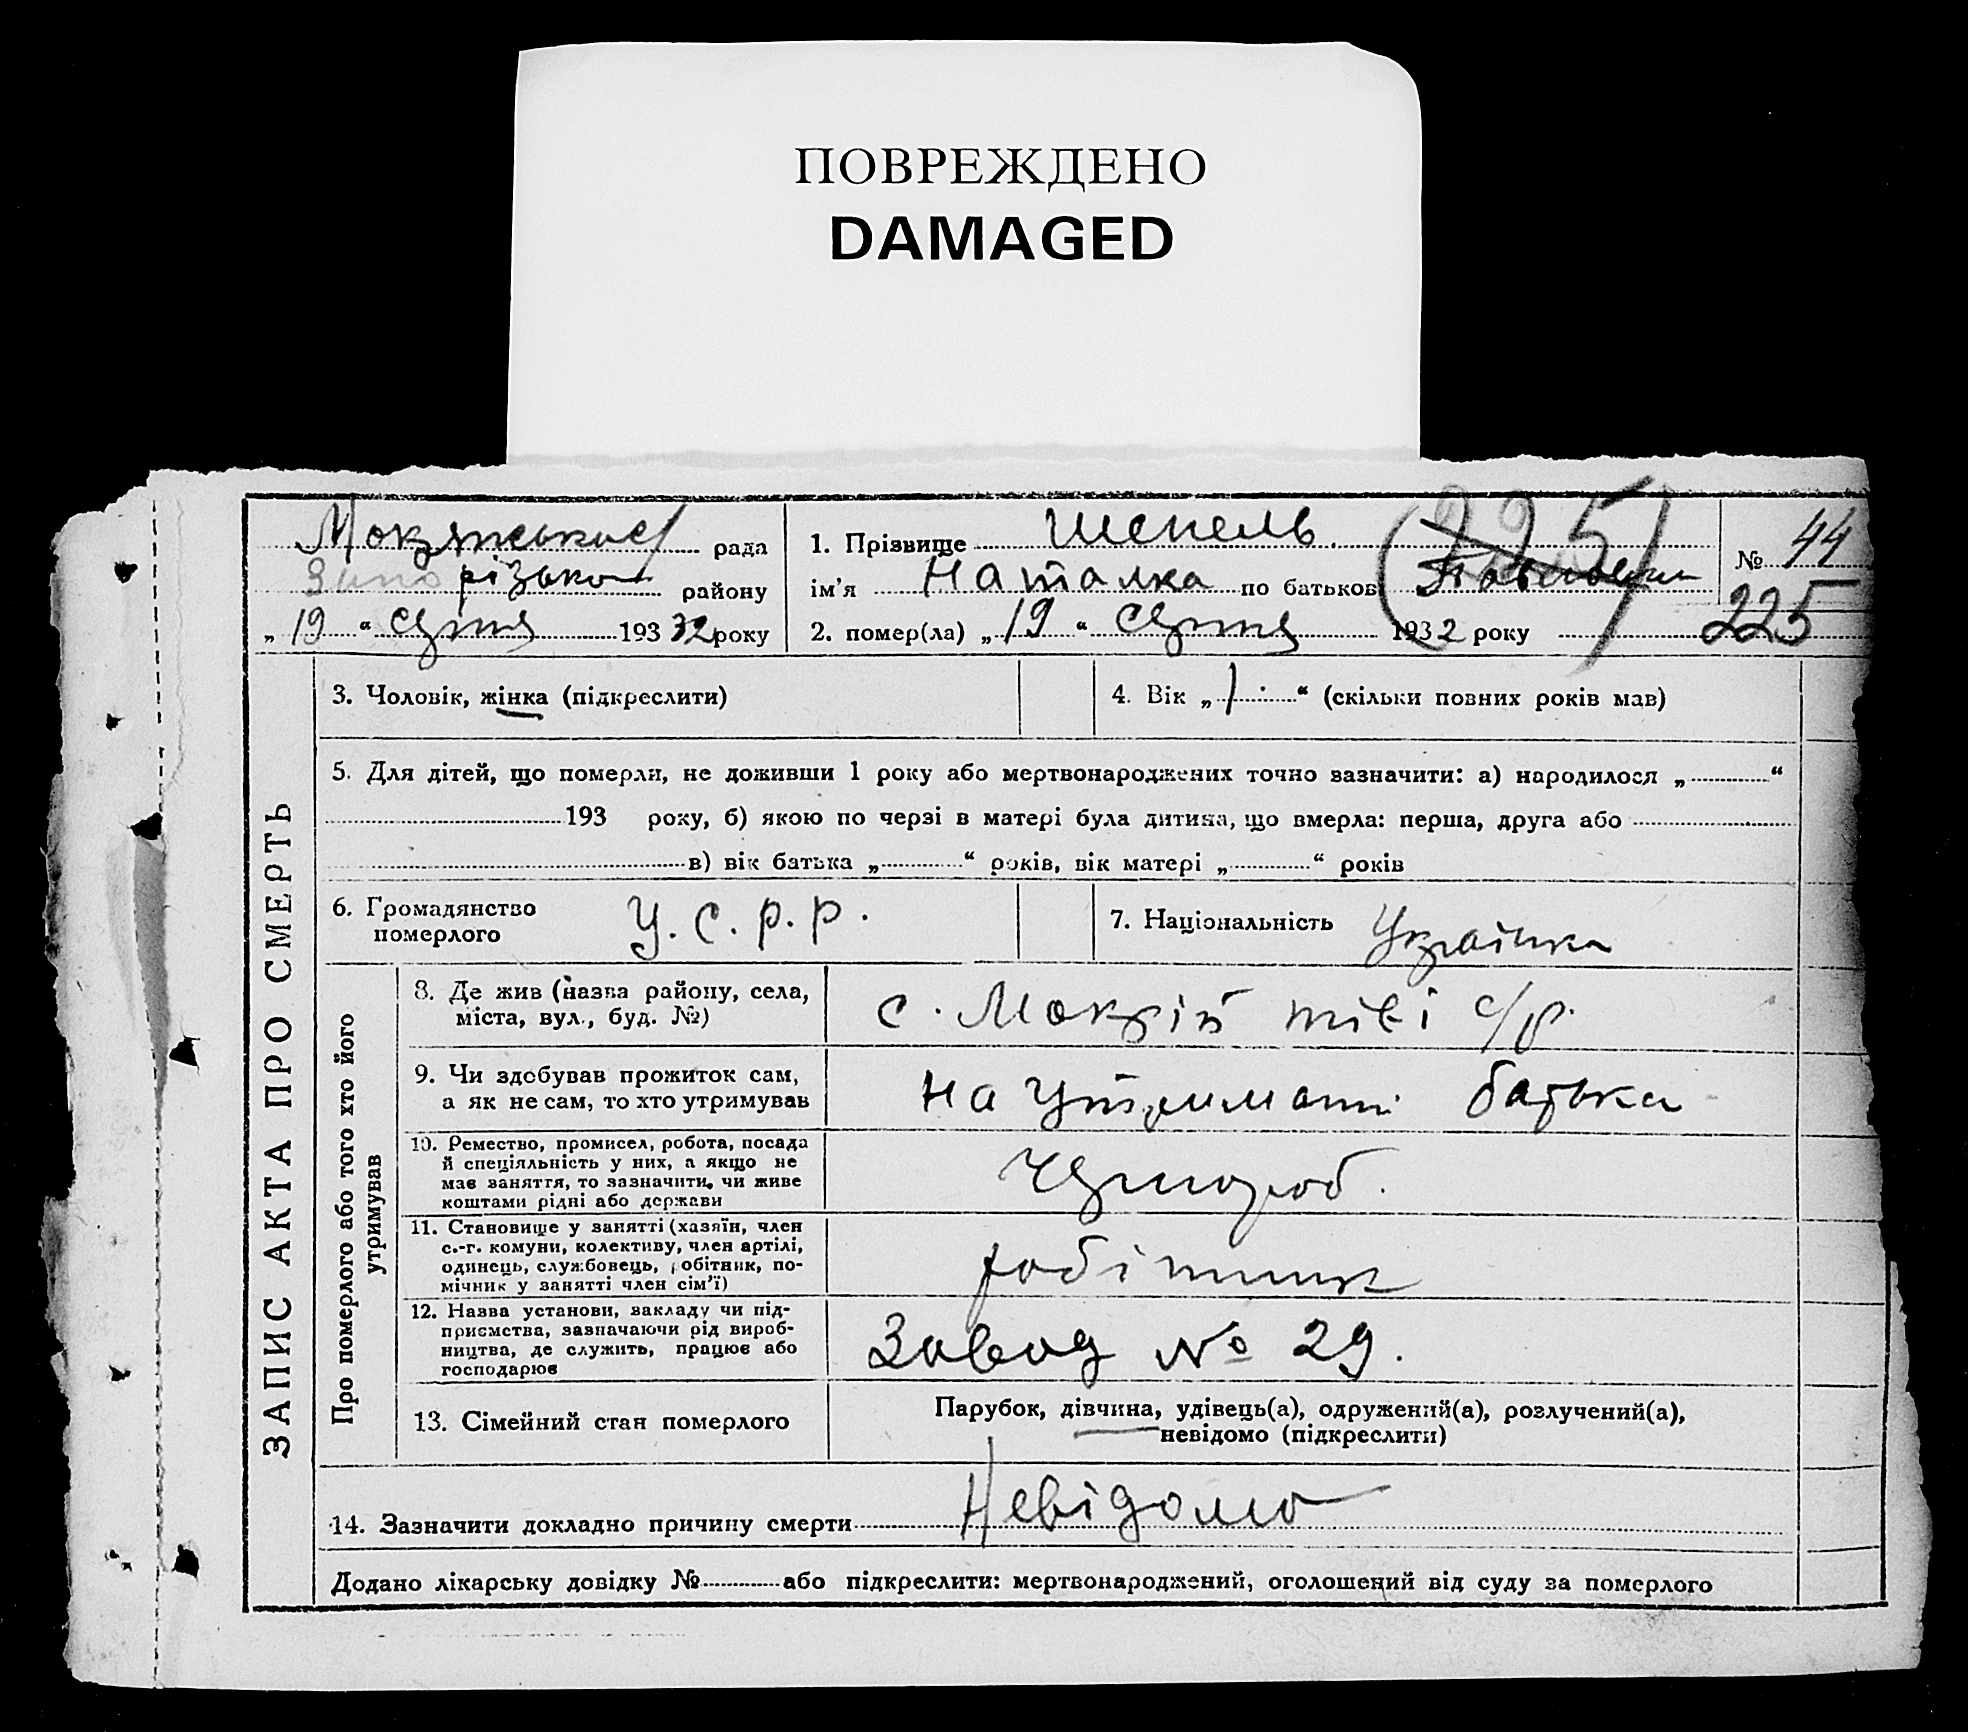 ПОВРЕЖДЕНО
DAMAGED
Мокрянської рада
Запорізького району
„ 19 “ серпня 193 32 року
1. Прізвище Шепель.
ім’я Наталка по батькові Павловна
(225)
№ 44
225
2. помер(ла) „ 19 “ серпня 1932 року
3. Чоловік, жінка (підкреслити)
4. Вік „ 1 “ (скільки повних років мав)
5. Для дітей, що померли, не доживши 1 року або мертвонароджених точно зазначити: а) народилося „ “
193 року, б) якою по черзі в матері була дитина, що вмерла: перша, друга або
в) вік батька „ “ років, вік матері „ “ років
6. Громадянство
померлого
У. С. Р. Р.
7. Національність Українка
ЗАПИС АКТА ПРО СМЕРТЬ
Про померлого або того хто його
утримував
8. Де жив (назва району, села,
міста, вул., буд. №)
с. Мокрій с/р.
9. Чи здобував прожиток сам,
а як не сам, то хто утримував
на утриманні батька
10. Ремество, промисел, робота, посада
й спеціяльність у них, а якщо не
має заняття, то зазначити, чи живе
коштами рідні або держави
Чорнороб.
11. Становище у занятті (хазяїн, член
с.-г. комуни, колективу, член артілі,
одинець, службовець, робітник, по-
мічник у занятті член сім’ї)
робітник
12. Назва установи, закладу чи під-
приємства, зазначаючи рід вироб-
ництва, де служить, працює або
господарює
Завод № 29.
13. Сімейний стан померлого
Парубок, дівчина, удівець(а), одружений(а), розлучений(а),
невідомо (підкреслити)
14. Зазначити докладно причину смерти Невідомо
Додано лікарську довідку № або підкреслити: мертвонароджений, оголошений від суду за померлого